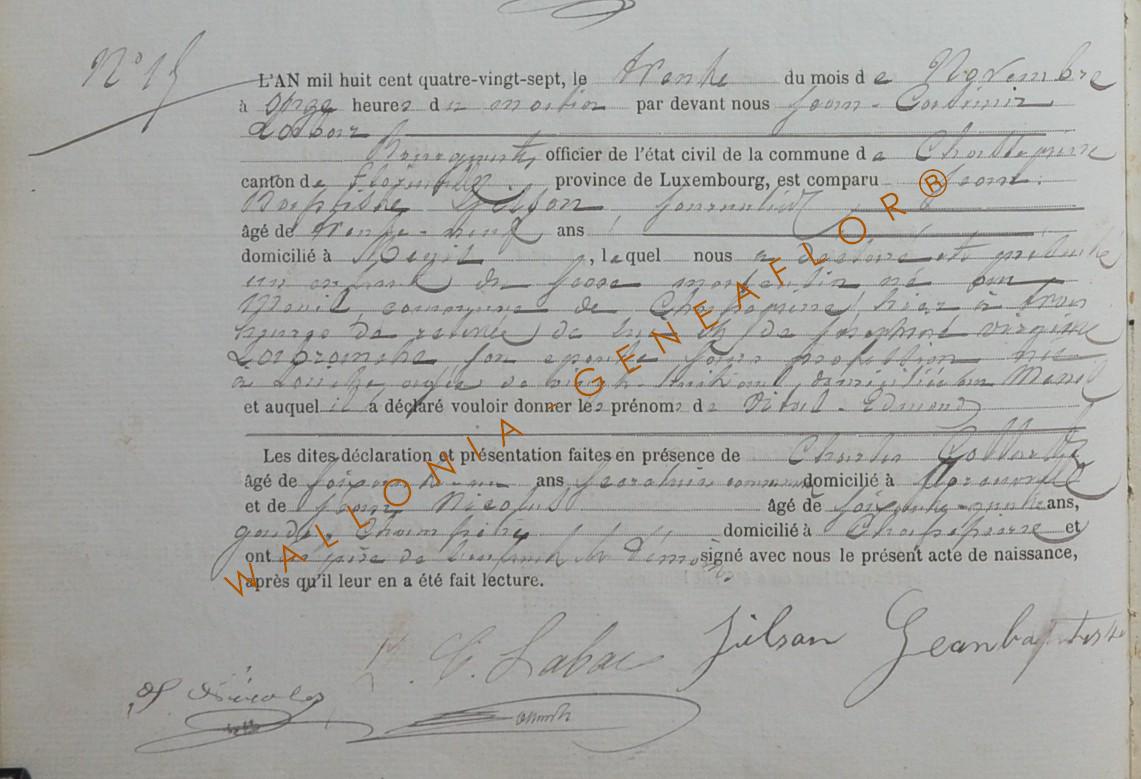 N° 15
L'AN mil huit cent quatre-vingt-sept, le trente du mois de Novembre
à onze heures du matin par devant nous Jean-Casimir
Labbaz
Bourgmestre, officier de l'état civil de la commune de Chassepierre
canton de Florenville, province de Luxembourg, est comparu Jean
Baptiste Gilson, journalier
âgé de trente-neuf ans
domicilié à , lequel nous a déclaré et présenté
un enfant du sexe masculin né au
commune de Chassepierre, hier à trois
heures de relevée, de lui et de Joséphine Virginie
son épouse sans profession née
à âgée de vingt-huit ans, domiciliée au
et auquel il a déclaré vouloir donner les prénoms de Vital-Edmond
Les dites déclaration et présentation faites en présence de Charles
âgé de soixante-un ans Secrétaire communal domicilié à Florenville
et de Nicolas âgé de soixante ans,
garde-Champêtre domicilié à Chassepierre et
ont le père de l'enfant les témoins signé avec nous le présent acte de naissance,
après qu'il leur en a été fait lecture.
Jilson Jeanbaptiste
Nicolas
WALLONIA - GENEAFLOR®